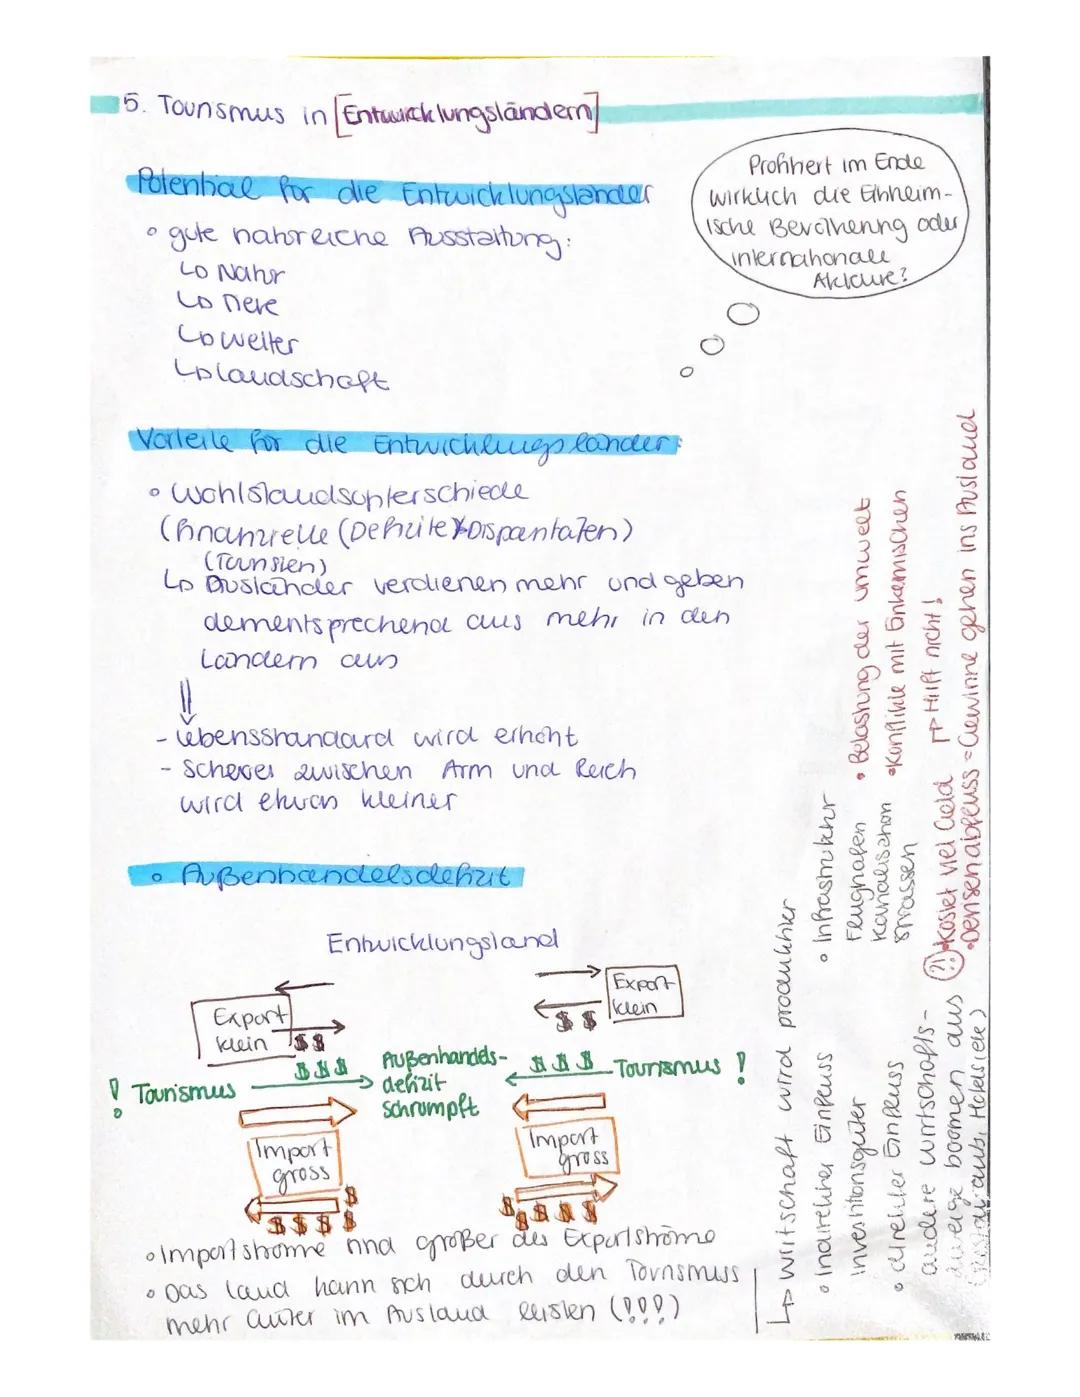 5. Tourismus in [Entwicklungsländern]
Profitiert im Ende
wirklich die Einheim-
ische Bevölkerung oder
internationale
Akteure?
Potential für die Entwicklungsländer
• gute naturreiche Ausstattung:
↳ Natur
↳ Tiere
↳ Wetter
↳ Landschaft
Vorteile für die Entwicklungsländer:
• Wohlstandsunterschiede
(finanzielle (Defizite) Disparitäten)
(Touristen)
↳ Ausländer verdienen mehr und geben
dementsprechend aus mehr in den
Ländern aus
⇓
- Lebensstandard wird erhöht
- Schere zwischen Arm und Reich
wird etwas kleiner
• Außenhandelsdefizit
Entwicklungsland
Export
klein
$ $
Export
klein
$ $
! Tourismus
$ $ $
Außenhandels-
defizit
schrumpft
$ $ $
Tourismus !
Import
gross
$
$ $ $ $
Import
gross
$
$ $ $ $
• Importströme sind größer als Exportströme
• Das Land kann sich durch den Tourismus
mehr Güter im Ausland leisten (!!!)
↳ Wirtschaft wird produktiver
• indirekter Einfluss
Investitionsgüter
• direkter Einfluss
andere Wirtschafts-
zweige boomen aus
(Restaurants, Hotels etc)
• Infrastruktur
Flughafen
Kanalisation
Strassen
• Belastung der Umwelt
• Konflikte mit Einheimischen
(?!) • Kostet viel Geld
↱ Hilft nicht!
• Devisenabfluss = Gewinne gehen ins Ausland